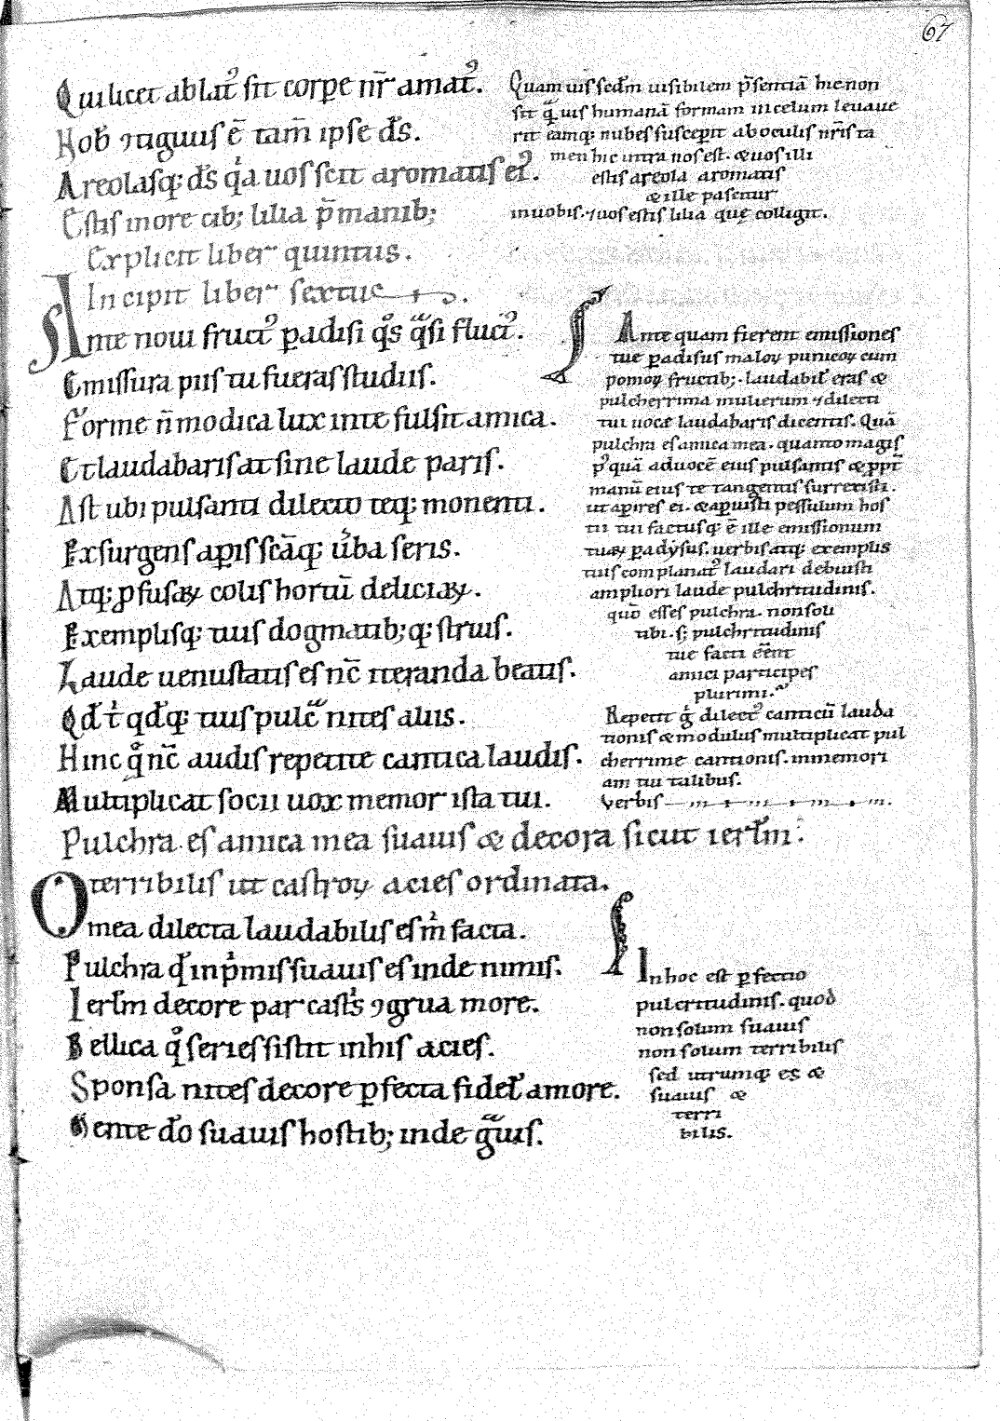 67
Qui licet ablat᷒ sit corꝑe nr̄ amat᷒.
Nob̄ ꝯtiguus ē tam̄ ipse d̄s.
Areolasq; d̄s q̇a uos scit aromatis ei᷒.
Estis more cib; lilia p̄manib;
Explicit liber quintus.
Incipit liber sextus.
Ante noui fruct᷒ ꝑadisi qͦs qͣsi fluct᷒.
Emissura pius tu fueras studiis.
Forme n̄ modica lux inte fulsit amica.
Et laudabaris at sine laude paris.
Ast ubi pulsanti dilecto teq; monenti.
Exsurgens aꝑis scāq; u̇ba seris.
Atq; ꝓfusaꝝ colis hortū deliciaꝝ.
Exemplisq; tuis dogmatib; q; struis.
Laude uenustatis es nc̄ iteranda beatis.
Qd̄ t̄ qd̄q; tuis pulcͣ nites aliis.
Hinc qͦ nc̄ audis repetite cantica laudis.
Multiplicat socii uox memor ista tui.
Pulchra es amica mea suauis & decora sicut ierl̄m.
terribilis ut castroꝝ acies ordinata.
O mea dilecta laudabilis es m̄ facta.
Pulchra q̄ inp̄mis suauis es inde nimis.
Ierl̄m decore par castṙs ꝯgrua more.
Bellica qͦ series sistit inhis acies.
Sponsa nites decore ꝑfecta fidel̄ amore.
Mente d̄o suauis hostib; inde gͣuis.
Quam uis sed̄m uisibilem p̄sentiā hic non
sit qͣuis humanā formam in celum leuaue
rit eamq; nubes susceꝑit ab oculis nr̄is ta
men hic intra nos est. & uos illi
estis areola aromatis
& ille pascitur
in uobis. ⁊ uos estis lilia quę colligit.
Ante quam fierent emissiones
tue ꝑadisus maloꝝ punicoꝝ cum
pomoꝝ fructib;. laudabil̄ eras &
pulcherrima mulierum ⁊ dilecti
tui uoce laudabaris dicentis. Quā
pulchra es amica mea. quanto magis
p᷒quā aduocē eius pulsantis & ꝓpt̄
manū eius te tangentis surrexisti.
ut aꝑires ei. & aꝑuisti pessulum hos
tii tui factusq; ē ille emissionum
tuaꝝ ꝑadysus. uerbis atq; exemplis
tuis complanat᷒ laudari debuisti
ampliori laude pulchritudinis.
quō esses pulchra. non soli
tibi. s; pulchritudinis
tue facti eēnt
amici participes
plurimi.
Repetit g̊ dilect᷒ canticū lauda
tionis & modulus multiplicat pul
cherrime cantionis. inmemori
am tui talibus.
verbis
In hoc est ꝑfectio
pulcritudinis. quod
non solum suauis
non solum terribilis
sed utrumq; es &
suauis &
terri
bilis.